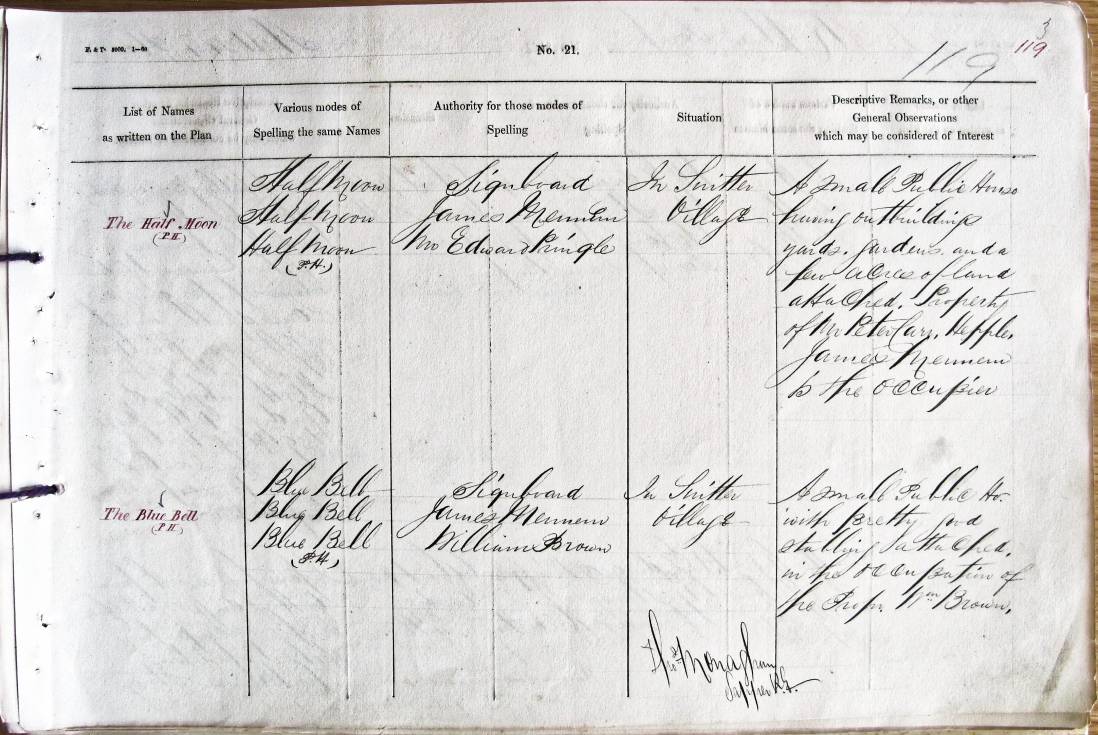 F. & Tº 2000. 1—60
No. 21.
3
119
119
List of Names
as written on the Plan
Various modes of
Spelling the same Names
Authority for those modes of
Spelling
Situation
Descriptive Remarks, or other
General Observations
which may be considered of Interest
The Half Moon
(P.H.)
Half Moon
Half Moon
Half Moon
(P.H.)
Signboard
James Mennem
Mr Edward Pringle
In Snitter
Village
A small Public House
having outbuildings
yards, gardens and a
few acres of land
attached. Property
of Mr Peter Carr, Hepple,
James Mennem
is the occupier
The Blue Bell
(P.H.)
Blue Bell
Blue Bell
Blue Bell
(P.H.)
Signboard
James Mennem
William Brown
In Snitter
Village
A small Public Ho.
with pretty good
stabling attached.
in the occupation of
the Propr. Wm Brown.
Monaghan
Sapper R.E.